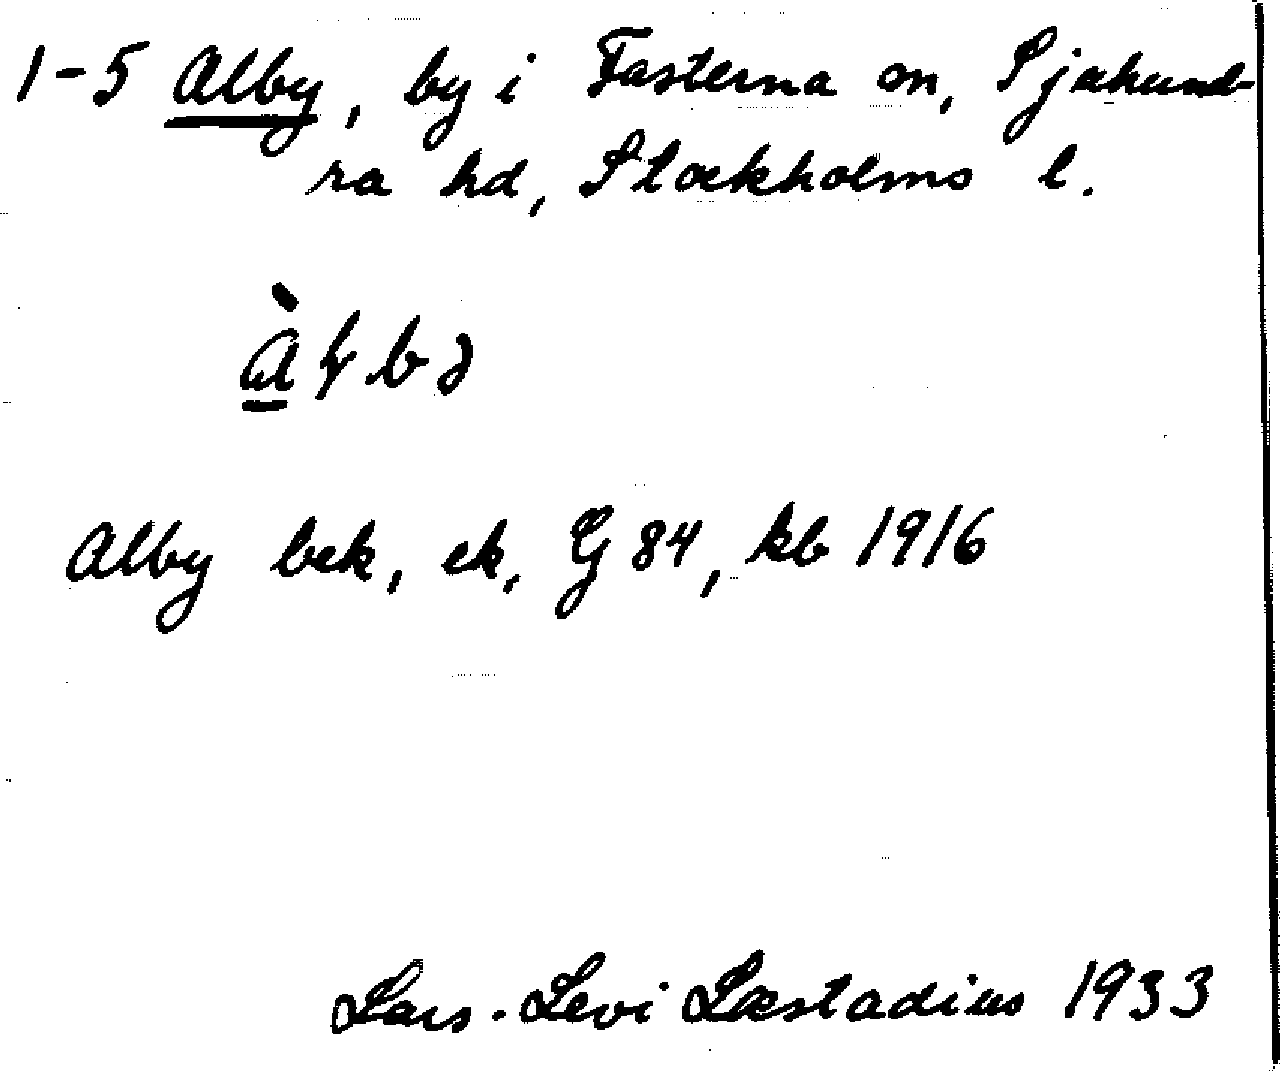 1-5 Alby, by i Fasterna sn, Sjuhund-
ra hd, Stockholms l.
Alby bek, ek, G 84, kb 1916
Lars-Levi Læstadius 1933